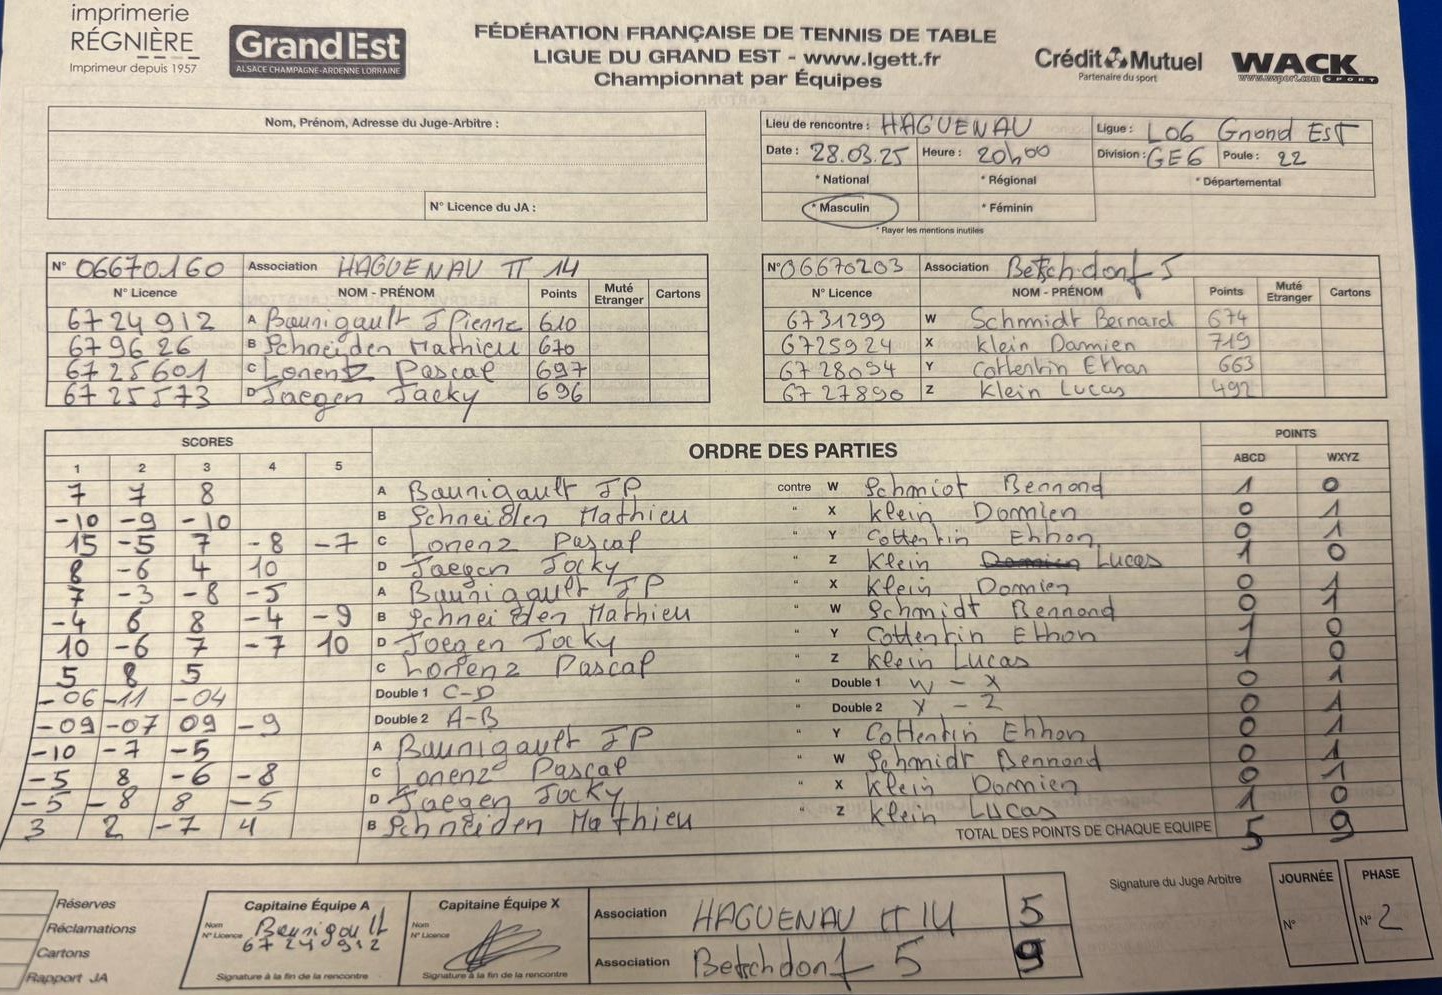 imprimerie
RÉGNIÈRE
Imprimeur depuis 1957
GrandEst
ALSACE CHAMPAGNE-ARDENNE LORRAINE
FÉDÉRATION FRANÇAISE DE TENNIS DE TABLE
LIGUE DU GRAND EST - www.lgett.fr
Championnat par Équipes
Crédit Mutuel
Partenaire du sport
WACK
www.wsport.com SPORT
Nom, Prénom, Adresse du Juge-Arbitre :
N° Licence du JA :
Lieu de rencontre : HAGUENAU Ligue : L06 Grand EST
Date : 28.03.25 Heure : 20h00 Division : GE6 Poule : 22
* National * Régional * Départemental
* Masculin * Féminin
* Rayer les mentions inutiles
N° 06670160 Association HAGUENAU TT 14
N° Licence NOM - PRÉNOM Points Muté Etranger Cartons
6724912 A Baurigault JPierre 610
679626 B Schneider Mathieu 670
6725601 C Lorentz Pascal 697
6725573 D Jaeger Jacky 696
N° 06670203 Association Betschdorf 5
N° Licence NOM - PRÉNOM Points Muté Etranger Cartons
6731299 W Schmidt Bernard 674
6725924 X Klein Damien 719
6728094 Y Cottentin Ethan 663
6727890 Z Klein Lucas 492
SCORES ORDRE DES PARTIES POINTS
1 2 3 4 5 ABCD WXYZ
7 7 8 A Baurigault JP contre W Schmidt Bernard 1 0
-10 -9 -10 B Schneider Mathieu " X Klein Damien 0 1
15 -5 7 -8 -7 C Lorenz Pascal " Y Cottentin Ethan 0 1
8 -6 4 10 D Jaeger Jacky " Z Klein Lucas 1 0
7 -3 -8 -5 A Baurigault JP " X Klein Damien 0 1
-4 6 8 -4 -9 B Schneider Mathieu " W Schmidt Bernard 0 1
10 -6 7 -7 10 D Jaeger Jacky " Y Cottentin Ethan 1 0
5 8 5 C Lorenz Pascal " Z Klein Lucas 1 0
-06 -11 -04 Double 1 C-D " Double 1 W - X 0 1
-09 -07 09 -9 Double 2 A-B " Double 2 Y - Z 0 1
-10 -7 -5 A Baurigault JP " Y Cottentin Ethan 0 1
-5 8 -6 -8 C Lorenz Pascal " W Schmidt Bernard 0 1
-5 -8 8 -5 D Jaeger Jacky " X Klein Damien 0 1
3 2 -7 4 B Schneider Mathieu " Z Klein Lucas 1 0
TOTAL DES POINTS DE CHAQUE EQUIPE 5 9
Réserves
Réclamations
Cartons
Rapport JA
Capitaine Équipe A
Nom Baurigault
N° Licence 6724912
Signature à la fin de la rencontre
Capitaine Équipe X
Nom
N° Licence
Signature à la fin de la rencontre
Association HAGUENAU TT 14 5
Association Betschdorf 5 9
Signature du Juge Arbitre
JOURNÉE
N°
PHASE
N° 2